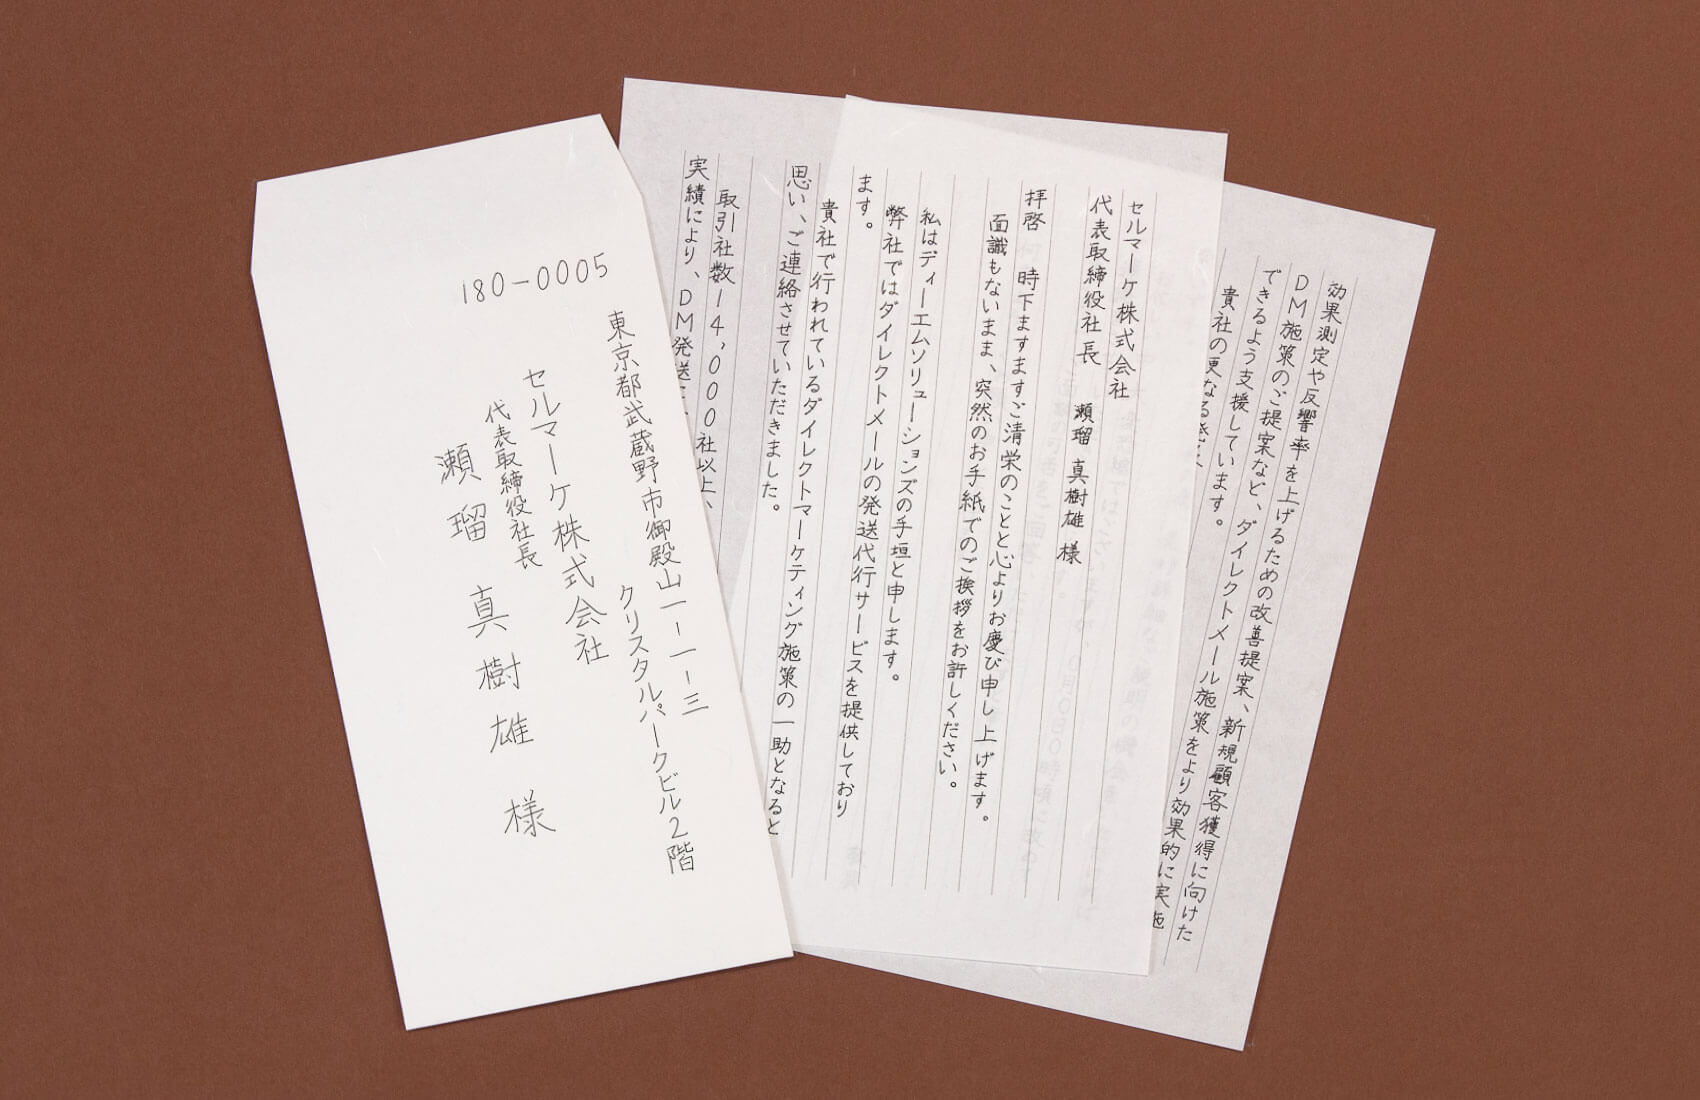 180-0005
東京都武蔵野市御殿山一-一-三
クリスタルパークビル2階
セルマーケ株式会社
代表取締役社長
瀬瑠 真樹雄 様
セルマーケ株式会社
代表取締役社長 瀬瑠 真樹雄 様
拝啓 時下ますますご清栄のことと心よりお慶び申し上げます。
面識もないまま、突然のお手紙でのご挨拶をお許しください。
私はディーエムソリューションズの手垣と申します。
弊社ではダイレクトメールの発送代行サービスを提供しており
ます。
貴社で行われているダイレクトマーケティング施策の一助となると
思い、ご連絡させていただきました。
取引社数14,000社以上、
実績により、DM発送
効果測定や反響率を上げるための改善提案、新規顧客獲得に向けた
DM施策のご提案など、ダイレクトメール施策をより効果的に実施
できるよう支援しています。
貴社の更なる発